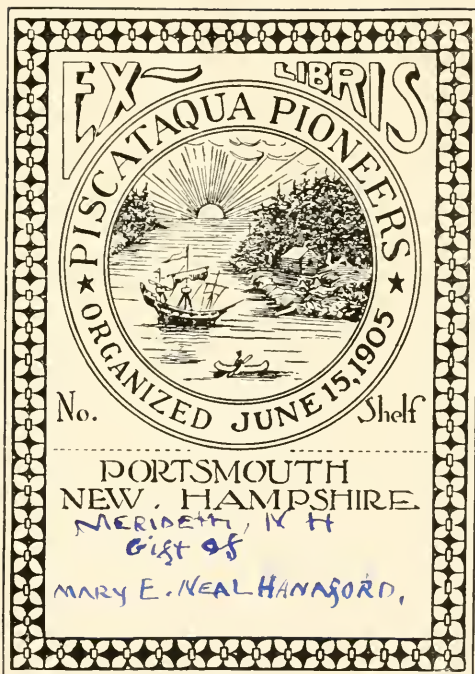 EX- LIBRIS
PISCATAQUA PIONEERS
★ ORGANIZED JUNE 15, 1905 ★
No. Shelf
PORTSMOUTH
NEW. HAMPSHIRE
MERIDETH, N H
Gift of
MARY E. NEAL HANAFORD,